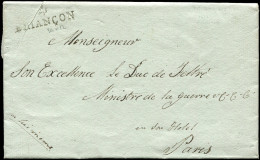 BRIANÇON
Monseigneur
Son Excellence le Duc de Feltre
Ministre de la Guerre &c &c &c
en son Hotel
Paris